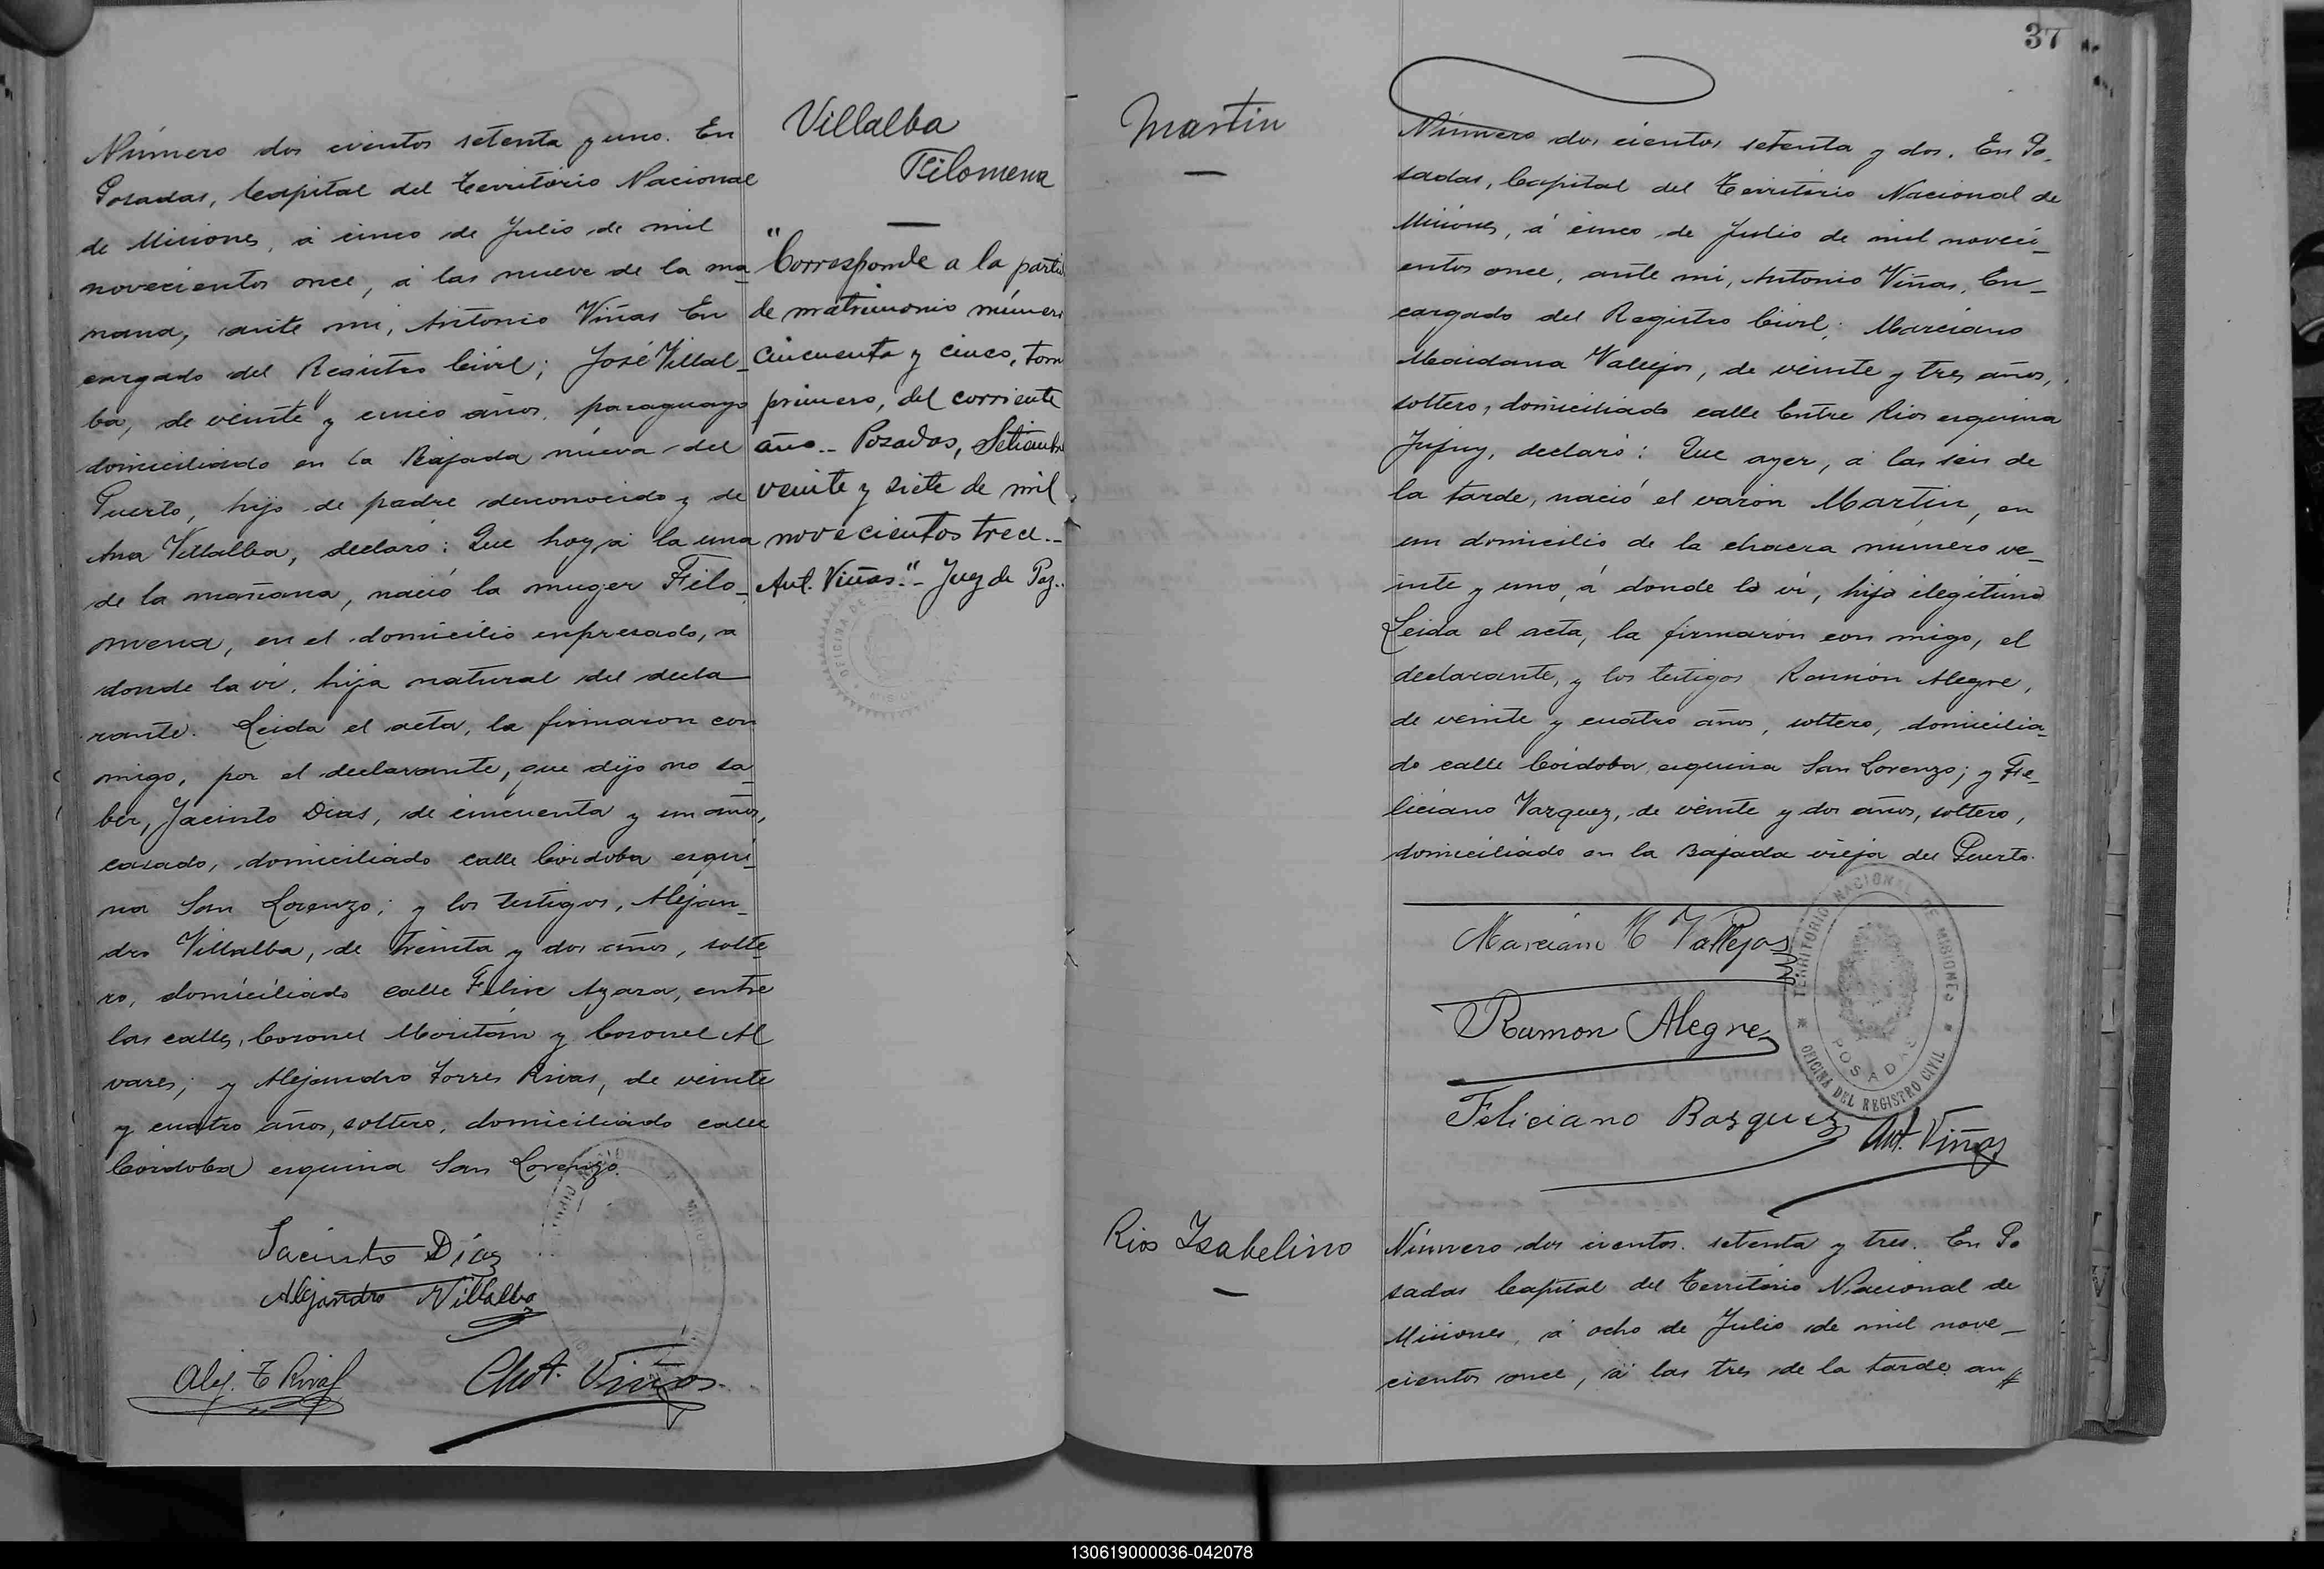 Número dos cientos setenta y uno. En
Posadas, Capital del Territorio Nacional
de Misiones, á cinco de Julio de mil
novecientos once, á las nueve de la ma_
ñana, ante mi, Antonio Viñas En
cargado del Registro Civil; José Villal_
ba, de veinte y cinco años, paraguayo
domiciliado en la Bajada nueva del
Puerto, hijo de padre desconocido y de
Ana Villalba, declaró: Que hoy á la una
de la mañana, nació la muger Filo_
mena, en el domicilio expresado, a
donde la ví, hija natural del decla
rante. Leida el acta, la firmaron con
migo, por el declarante, que dijo no sa_
ber, Jacinto Dias, de cincuenta y un años,
casado, domiciliado calle Córdoba esqui_
na San Lorenzo; y los testigos, Alejan_
dro Villalba, de treinta y dos años, solte_
ro, domiciliado calle Felix Azara, entre
las calles, Coronel Moritán y Coronel Al
vares; y Alejandro Torres Rivas, de veinte
y cuatro años, soltero, domiciliado calle
Córdoba esquina San Lorenzo.
Jacinto Díaz
Alejandro Villalba
Alej. T Rivas
Ant. Viñas
Villalba
Filomena
"Corresponde a la partid
de matrimonio númer
cincuenta y cinco, tom
primero, del corriente
año.- Posadas, Setiemb
veinte y siete de mil
novecientos trece.-
Ant. Viñas."- Juez de Paz.-
OFICINA DE
37
Martin
Número dos cientos setenta y dos. En Po_
sadas, Capital del Territorio Nacional de
Misiones, á cinco de Julio de mil noveci_
entos once, ante mi, Antonio Viñas, En_
cargado del Registro Civil; Marciano
Maidana Vallejos, de veinte y tres años,
soltero, domiciliado calle Entre Rios esquina
Jujuy, declaró: Que ayer, á las seis de
la tarde, nació el varon Martin, en
un domicilio de la chacra número ve_
inte y uno, á donde lo ví, hijo ilegitimo
Leida el acta, la firmaron con migo, el
declarante, y los testigos Ramón Alegre,
de veinte y cuatro años, soltero, domicilia_
do calle Córdoba esquina San Lorenzo; y Fe_
liciano Vazquez, de veinte y dos años, soltero,
domiciliado en la Bajada vieja del Puerto.
Marciano M Vallejos
Ramon Alegre
Feliciano Bazquez
Ant. Viñas
TERRITORIO NACIONAL DE MISIONES
POSADAS
OFICINA DEL REGISTRO CIVIL
Rios Isabelino
Número dos cientos setenta y tres. En Po
sadas Capital del Territorio Nacional de
Misiones, á ocho de Julio de mil nove_
cientos once, á las tres de la tarde an
130619000036-042078